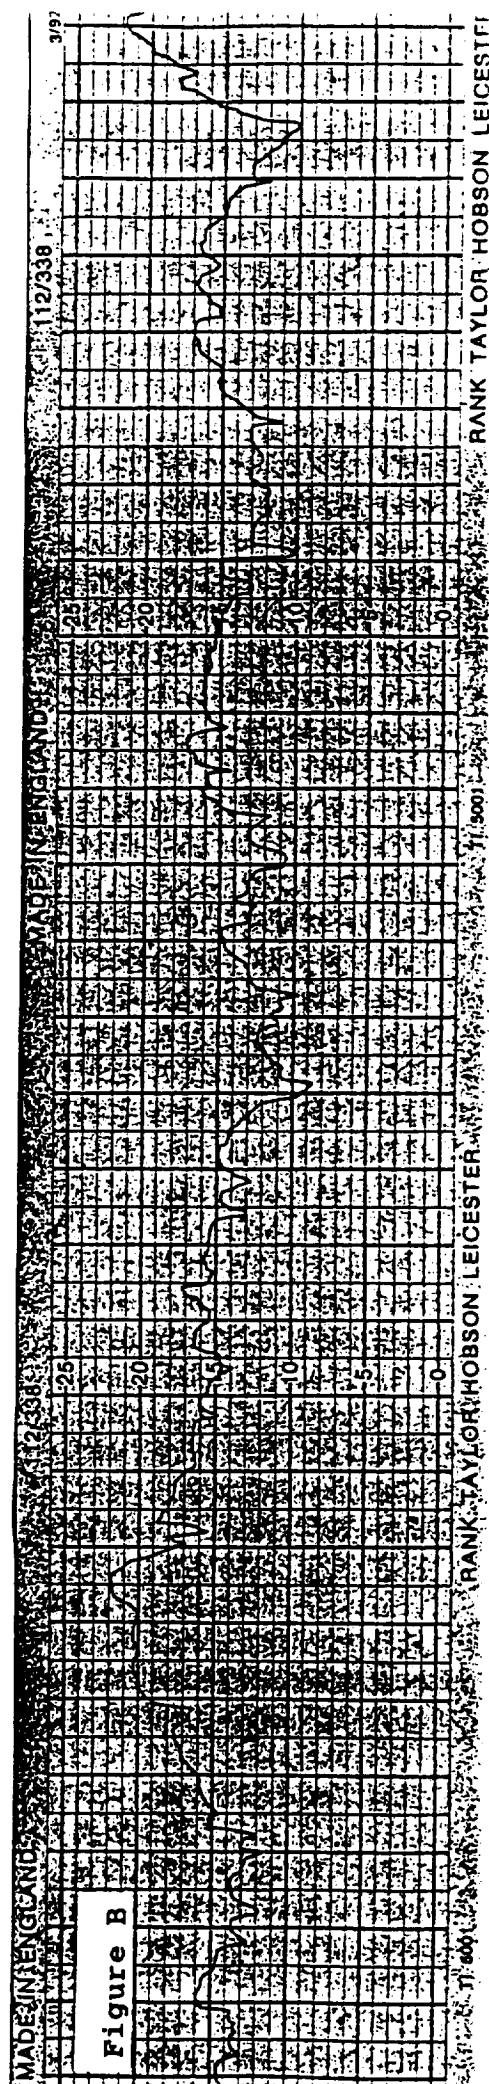 MADE IN ENGLAND
112/338
MADE IN ENGLAND
MADE IN ENGLAND
112/338
3/97
Figure B
25
20
15
10
5
0
25
20
10
0
RANK TAYLOR HOBSON LEICESTER
RANK TAYLOR HOBSON LEICESTER